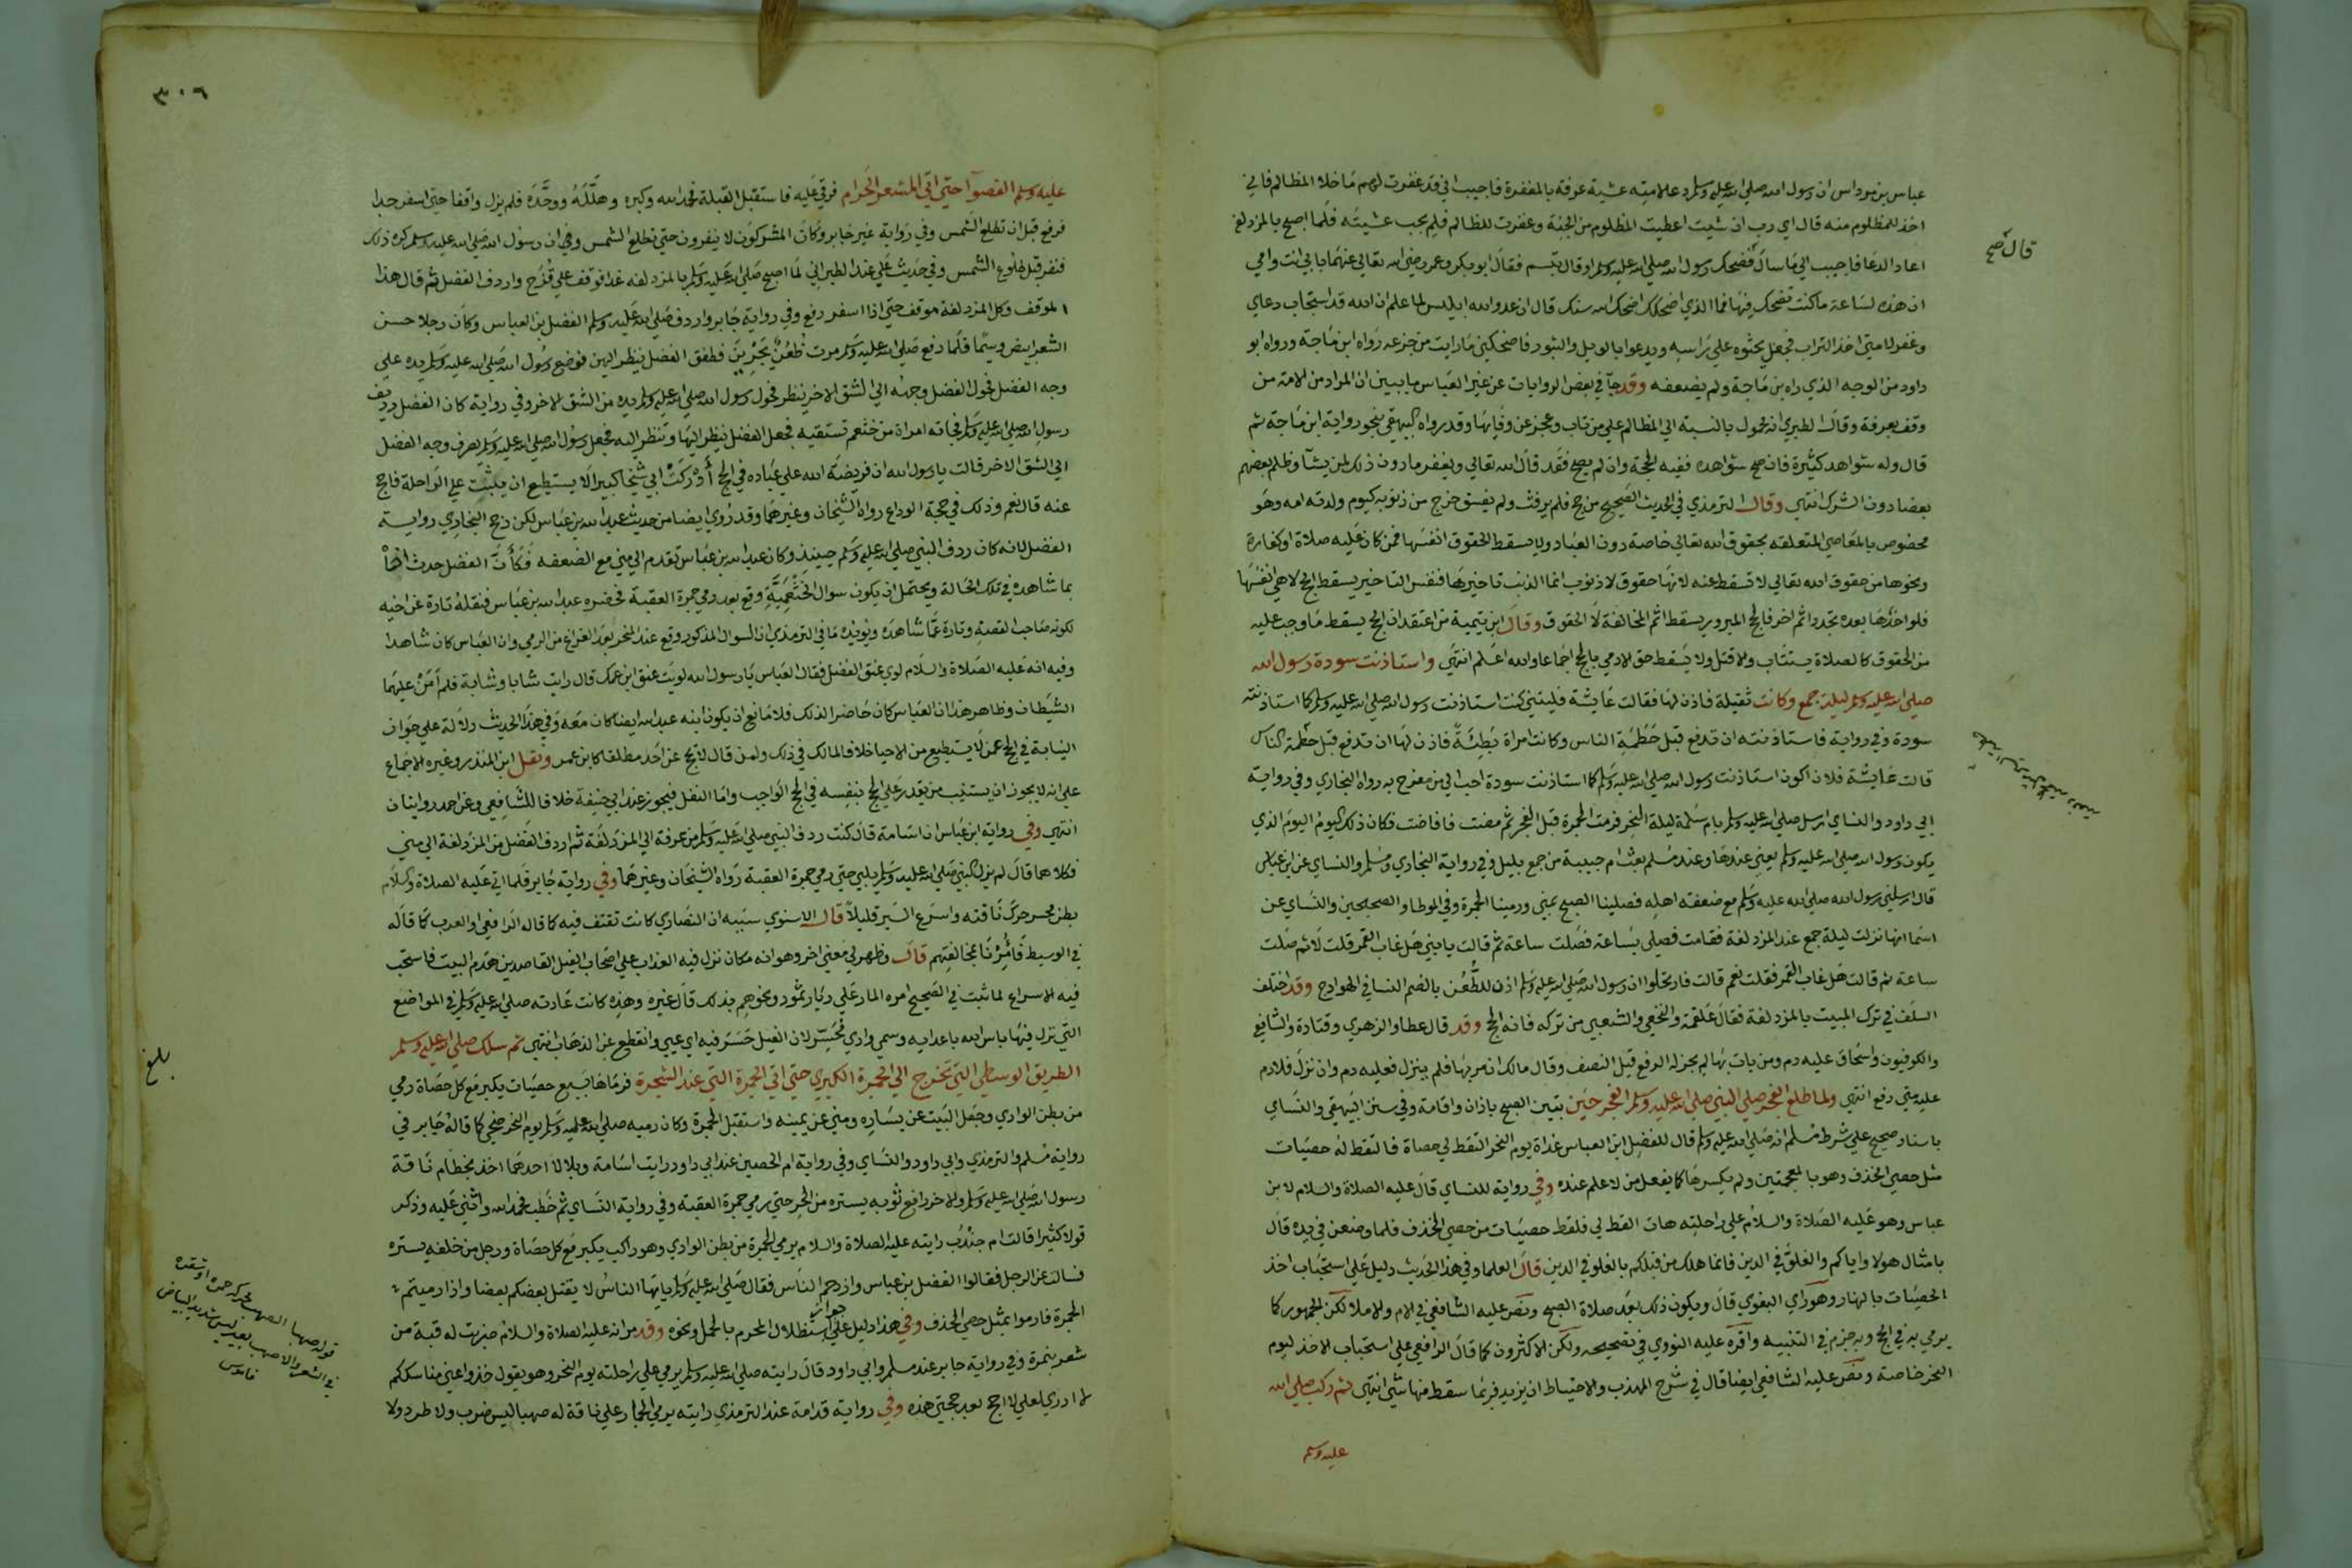 عباس بن مرداس ان رسول الله صلى الله عليه وسلم دعا لامته عشية عرفة بالمغفرة فاجيب اني قد غفرت لهم ما خلا المظالم فاني
اخذ للمظلوم منه قال اي رب ان شيت اعطيت المظلوم من الجنة وغفرت للظالم فلم يجب عشيته فلما اصبح بالمزدلفة
قال صح
اعاد الدعا فاجيب الي ما سال فضحك رسول الله صلى الله عليه وسلم او قال تبسم فقال ابو بكر وعمر رضي الله تعالى عنهما بابي انت وامي
ان هذه لساعة ما كنت تضحك فيها فما الذي اضحكك اضحك الله سنك قال ان عدو الله ابليس لما علم ان الله قد استجاب دعاي
وغفر لامتي اخذ التراب فجعل يحثوه علي راسه ويدعوا بالويل والثبور فاضحكني ما رايت من جزعه رواه ابن ماجة ورواه ابو
داود من الوجه الذي راه بن ماجة ولم يضعفه وقد جآ في بعض الروايات عن غير العباس ما يبين ان المراد من الامة من
وقف بعرفة وقال الطبري انه محمول بالنسبة الي المظالم علي من تاب وعجز عن وفايها وقد رواه البيهقي بنحو رواية ابن ماجة ثم
قال وله شواهد كثيرة فان صح شواهده ففيه الحجة وان لم يصح فقد قال الله تعالي ويغفر ما دون ذلك لمن يشآ وظلم بعضهم
بعضا دون الشرك انتهي وقال الترمذي في الحديث الصحيح من حج فلم يرفث ولم يفسق خرج من ذنوبه كيوم ولدته امه وهو
مخصوص بالمعاصي المتعلقه بحقوق الله تعالي خاصة دون العباد ولا يسقط الحقوق انفسها فمن كان عليه صلاة او كفارة
ونحوها من حقوق الله تعالي لا تسقط عنه لانها حقوق لا ذنوب انما الذنب تاخيرها فنفس التاخير يسقط بالحج لا هي انفسها
فلو اخرها بعده تجدد اثم اخر فالحج المبرور يسقط اثم المخالفة لا الحقوق وقال ابن تيمية من اعتقد ان الحج يسقط ما وجب عليه
من الحقوق كالصلاة يستتاب والا قتل ولا يسقط حق الادمي بالحج اجماعا والله اعلم انتهي واستاذنت سودة رسول الله
صلى الله عليه وسلم ليلة جمع وكانت ثقيلة فاذن لها فقالت عايشة فليتني كنت استاذنت رسول الله صلى الله عليه وسلم كما استاذنته
سودة وفي رواية فاستاذنته ان تدفع قبل حطمة الناس وكانت امراة بطئة فاذن لها ان تدفع قبل حطمة الناس
قالت عايشة فلان اكون استاذنت رسول الله صلى الله عليه وسلم كما استاذنت سودة احب الي من مفرح به رواه البخاري وفي رواية
ابي داود والنساي ارسل صلى الله عليه وسلم بام سلمة ليلة النحر فرمت الجمرة قبل الفجر ثم مضت فافاضت فكان ذلك اليوم اليوم الذي
يكون رسول الله صلى الله عليه وسلم يعني عندها وعند مسلم بعث ام حبيبة من جمع بليل وفي رواية البخاري ومسلم والنساي عن ابن عباس
قال ارسلني رسول الله صلى الله عليه وسلم مع ضعفة اهله فصلينا الصبح بمني ورمينا الجمرة وفي الموطا والصحيحين والنساي عن
اسما انها نزلت ليلة جمع عند المزدلفة فقامت فصلي بساعة فصلت ساعة ثم قالت يا بني هل غاب القمر قلت لا ثم صلت
ساعة ثم قالت هل غاب القمر فقلت نعم قالت فارتحلوا ان رسول الله صلى الله عليه وسلم اذن للظعن بالضم النسا في الهوادج وقد اختلف
السلف في ترك المبيت بالمزدلفة فقال علقمة والنخعي والشعبي من تركه فاته الحج وقد قال عطا والزهري وقتادة والشافعي
والكوفيون واسحاق عليه دم ومن بات بها لم يجز له الدفع قبل النصف وقال مالك ان مر بها فلم ينزل فعليه دم وان نزل فلا دم
عليه متي دفع انتهي ولما طلع الفجر صلي النبي صلى الله عليه وسلم الفجر حين تبين الصبح باذان واقامة وفي سنن البيهقي والنساي
باسناد صحيح علي شرط مسلم انه صلى الله عليه وسلم قال للفضل ابن العباس غداة يوم النحر التقط لي حصاة فالتقط له حصيات
مثل حصي الخذف وهو بالمعجمتين ولم يكسرها كما يفعل من لا علم عنده وفي رواية للنساي قال عليه الصلاة والسلام لابن
عباس وهو عليه الصلاة والسلام علي راحلته هات القط لي فلقط حصيات من حصي الخذف فلما وضعن في يده قال
بامثال هولا واياكم والغلو في الدين فانما هلك من قبلكم بالغلو في الدين قال العلما وفي هذا الحديث دليل علي استحباب اخذ
الحصيات بالنهار وهو راي البغوي قال ويكون ذلك بعد صلاة الصبح ونص عليه الشافعي في الام والاملا لكن الجمهور كما
يرمي به في الحج وبه جزم في التنبيه واقره عليه النووي في تصحيحه ولكن الاكثرون كما قال الرافعي علي استحباب الاخذ ليوم
النحر خاصة ونص عليه الشافعي ايضا قال في شرح المهذب والاحتياط ان يزيد فربما سقط منها شي انتهي ثم ركب صلي الله
عليه وسلم
٣٠٦
عليه وسلم القصوآ حتي اتي المشعر الحرام فرقي عليه فاستقبل القبلة فحمد الله وكبره وهلله ووحده فلم يزل واقفا حتي اسفر جدا
فدفع قبل ان تطلع الشمس وفي رواية غير جابر وكان المشركون لا ينفرون حتي تطلع الشمس وفي ان رسول الله صلى الله عليه وسلم كره ذلك
فنفر قبل طلوع الشمس وفي حديث علي عند الطبراني لما اصبح صلى الله عليه وسلم بالمزدلفه غدا فوقف علي قزح واردف الفضل ثم قال هذا
الموقف وكل المزدلفة موقف حتي اذا اسفر دفع وفي رواية جابر واردف صلى الله عليه وسلم الفضل بن العباس وكان رجلا حسن
الشعر ابيض وسيما فلما دفع صلى الله عليه وسلم مرت ظعن يجرين فطفق الفضل ينظر اليهن فوضع رسول الله صلى الله عليه وسلم يده علي
وجه الفضل فحول الفضل وجهه الي الشق الاخر ينظر فحول رسول الله صلى الله عليه وسلم يده من الشق الاخر وفي رواية كان الفضل رديف
رسول الله صلى الله عليه وسلم فجاته امراة من خثعم تستفتيه فجعل الفضل ينظر اليها وتنظر اليه فجعل رسول الله صلى الله عليه وسلم يصرف وجه الفضل
الي الشق الاخر قالت يا رسول الله ان فريضة الله علي عباده في الحج أدركت ابي شيخا كبيرا لا يستطيع ان يثبت علي الراحلة فاحج
عنه قال نعم وذلك في حجة الوداع رواه الشيخان وغيرهما وقد روي ايضا من حديث عبد الله بن عباس لكن رجح البخاري رواية
الفضل لانه كان ردف النبي صلى الله عليه وسلم حينيذ وكان عبد الله بن عباس تقدم الي مني مع الضعفه فكأن الفضل حدث اخاه
بما شاهده في تلك الحالة ويحتمل ان يكون سوال الخثعمية وقع بعد رمي جمرة العقبة فحضره عبد الله بن عباس فنقله تارة عن اخيه
لكونه صاحب القصة وتارة عما شاهده ويويده ما في الترمذي ان السوال المذكور وقع عند المنحر بعد الفراغ من الرمي وان العباس كان شاهدا
وفيه انه عليه الصلاة والسلام لوي عنق الفضل فقال العباس يا رسول الله لويت عنق ابن عمك قال رايت شابا وشابة فلم آمن عليهما
الشيطان وظاهر هذا ان العباس كان حاضرا لذلك فلا مانع ان يكون ابنه عبد الله ايضا كان معه وفي هذا الحديث دلالة علي جواز
النيابة في الحج عمن لا يستطيع من الاحيا خلافا لمالك في ذلك ولمن قال لا يحج عن احد مطلقا كابن عمر ونقل ابن المنذر وغيره الاجماع
علي انه لا يجوز ان يستنيب من يقدر علي الحج بنفسه في الحج الواجب واما النفل فيجوز عند ابي حنيفة خلافا للشافعي وعن احمد روايتان
انتهي وفي رواية ابن عباس ان اسامة قال كنت ردف النبي صلى الله عليه وسلم من عرفة الي المزدلفة ثم اردف الفضل من المزدلفة الي مني
فكلاهما قال لم يزل النبي صلى الله عليه وسلم يلبي حتي رمي جمرة العقبة رواه الشيخان وغيرهما وفي رواية جابر فلما اتي عليه الصلاة والسلام
بطن محسر حرك ناقته واسرع السير قليلا قال الاسنوي سببه ان النصاري كانت تقف فيه كما قاله الرافعي او العرب كما قاله
في الوسيط فأمرنا بمخالفتهم قال وظهر لي معني اخر وهو انه مكان نزل فيه العذاب علي اصحاب الفيل القاصدين هدم البيت فاستحب
فيه الاسراع لما ثبت في الصحيح امره المار علي ديار ثمود ونحوهم بذلك قال غيره وهذه كانت عادته صلى الله عليه وسلم في المواضع
التي نزل فيها باس الله باعدايه وسمي وادي محسر لان الفيل حسر فيه اي عيي وانقطع عن الذهاب انتهي ثم سلك صلى الله عليه وسلم
بلغ
الطريق الوسطي التي تخرج الي الجمرة الكبري حتي اتي الجمرة التي عند الشجرة فرماها بسبع حصيات يكبر مع كل حصاة رمي
من بطن الوادي وجعل البيت عن يساره ومني عن يمينه واستقبل الجمرة وكان رميه صلى الله عليه وسلم يوم النحر ضحي كما قاله جابر في
رواية مسلم والترمذي وابي داود والنساي وفي رواية ام الحصين عند ابي داود رايت اسامة وبلالا احدهما اخذ بخطام ناقة
رسول الله صلى الله عليه وسلم والاخر رافع ثوبه يستره من الحر حتي رمي جمرة العقبة وفي رواية النساي ثم خطب فحمد الله واثني عليه وذكر
قولا كثيرا قالت ام جندب رايته عليه الصلاة والسلام يرمي الجمرة من بطن الوادي وهو راكب يكبر مع كل حصاة ورجل من خلفه يستره
فسالت عن الرجل فقالوا الفضل بن عباس وازدحم الناس فقال صلى الله عليه وسلم يا يها الناس لا يقتل بعضكم بعضا واذا رميتم
الجمرة فارموا بمثل حصي الخذف وفي هذا دليل علي جواز استظلال المحرم بالمحمل ونحوه وقد مر انه عليه الصلاة والسلام ضربت له قبة من
شعر بنمرة وفي رواية جابر عند مسلم وابي داود قال رايته صلى الله عليه وسلم يرمي علي راحلته يوم النحر وهو يقول خذوا عني مناسككم
لا ادري لعلي لا احج بعد حجتي هذه وفي رواية قدامة عند الترمذي رايته يرمي الجمار علي ناقة له صهبا ليس ضرب ولا طرد ولا
قوله صهبا الصهب محركه حمرة او شقرة
في الشعر والاصهب بعير ليس شديد البياض
قاموس